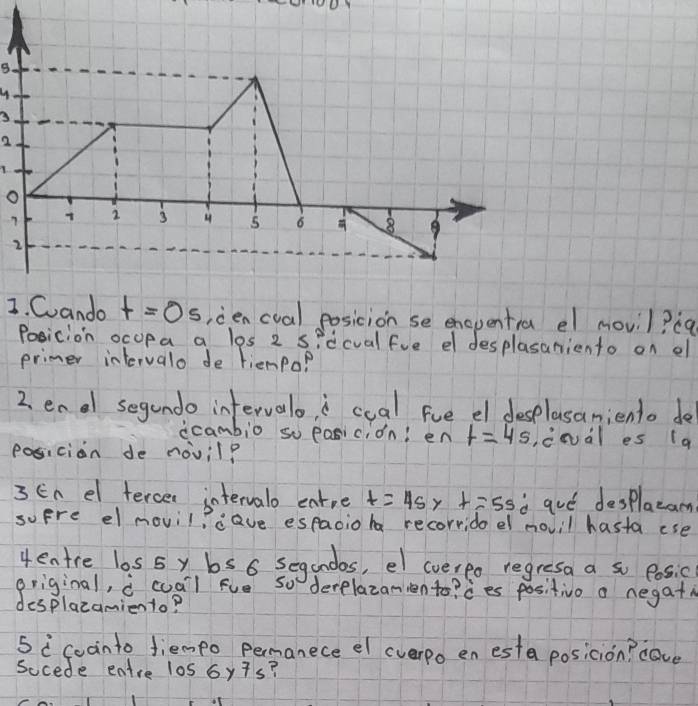 5
4
3
2
1
0
1
2
1 2 3 4 5 6 7 8 9
1. Cuando t = 0s, ¿en cual posición se encuentra el movil? ¿q
Posición ocupa a los 2 s? ¿cual fue el desplasamiento en el
primer intervalo de tiempo?
2. en el segundo intervalo, ¿ cual fue el desplasamiento del
¿cambio su posición? en t = 4s, ¿cuál es la
posición de móvil?
3 En el tercer intervalo entre t = 4s y t = 5s ¿ qué desplazam
sufre el movil? ¿Que espacio ha recorrido el movil hasta ese
4 entre los 5 y los 6 segundos, el cuerpo regresa a su posic
original, ¿ cuál fue su derplazamiento? ¿ es positivo o negativ
desplazamiento?
5 ¿ cuánto tiempo permanece el cuerpo en esta posición? ¿Que
Sucede entre los 6 y 7s?